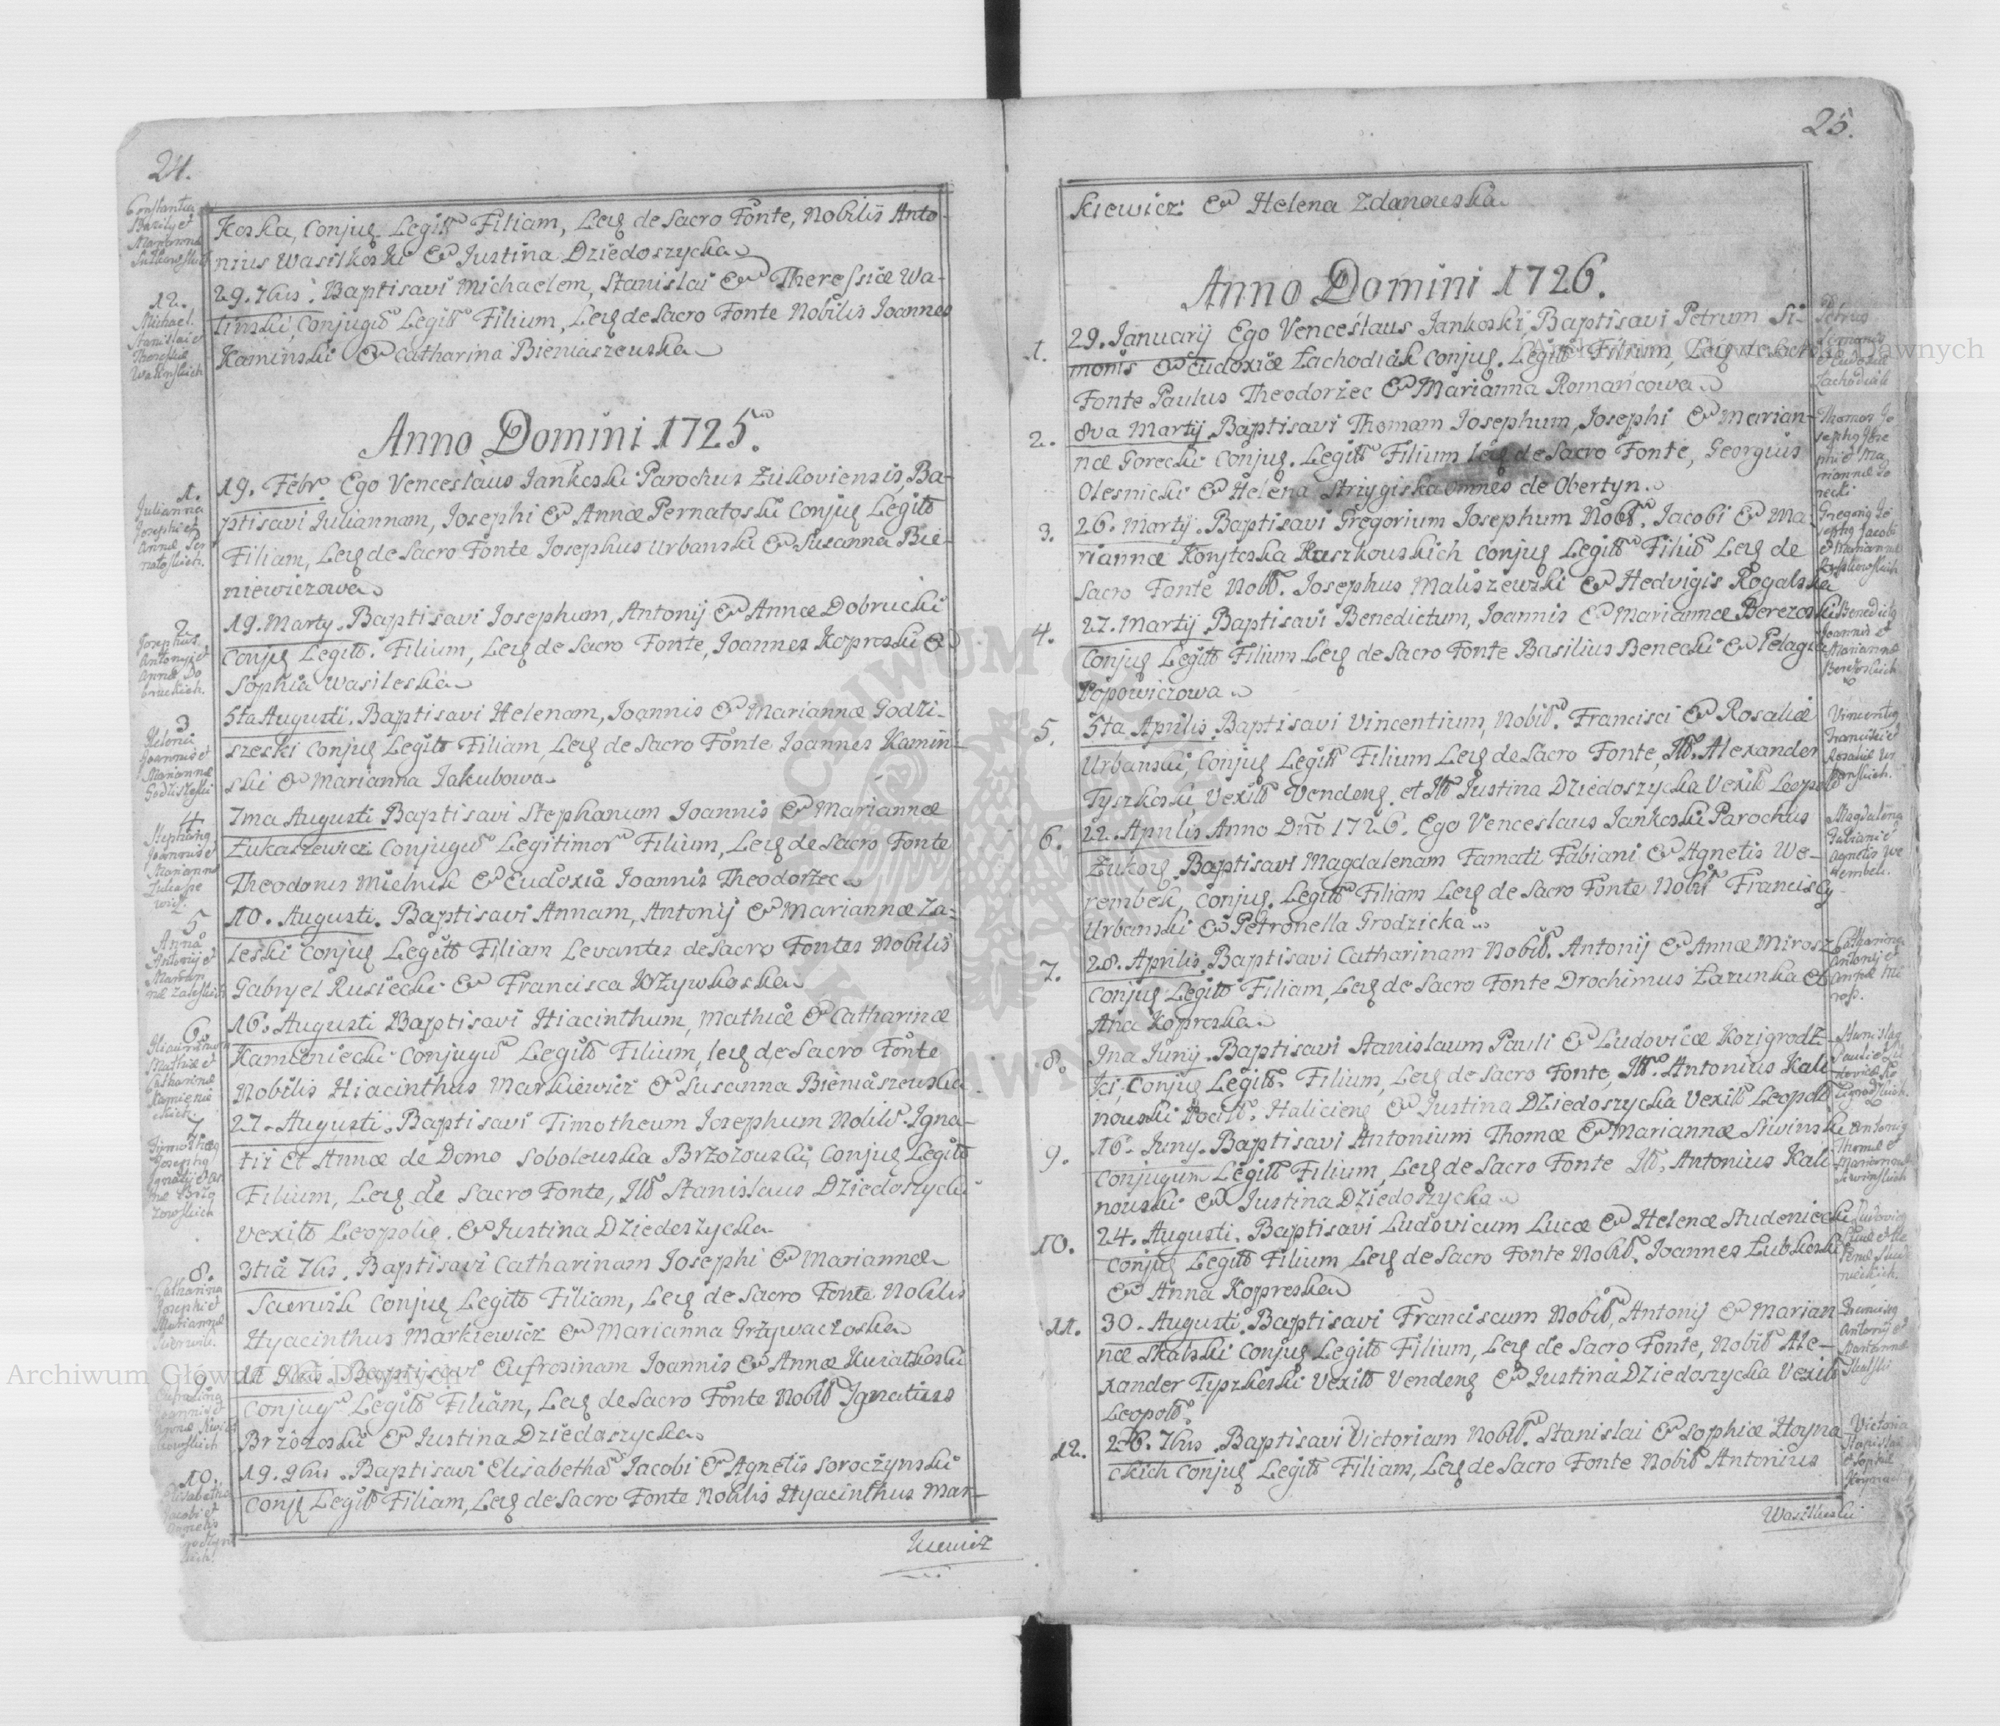 24.
Constantia
Basily et
Marianna
Koska, Conjug Legitt Filiam, Levg de Sacro Fonte, Nobilis Anto-
nius Wasilkoski & Justina Dziedoszycka
29. 7bris. Baptisavi Michaelem, Stanislai & Theressiæ Wa-
linski, Conjugu Legitt Filium, Levg de Sacro Fonte Nobilis Joannes
Kaminski & Catharina Bieniaszewska
12.
Michael
Stanislai et
Theresiæ
Walinskich
Anno Domini 1725.
19. Febr. Ego Venceslaus Jankoski Parochus Zukoviensis, Ba-
ptisavi Juliannam, Josephi & Annæ Pernatoski Conjug Legitt
Filiam, Levg de Sacro Fonte Josephus Urbanski & Susanna Bie-
niewiczowa
1.
Julianna
Josephi et
Annæ Per
natoskich.
19. Marty. Baptisavi Josephum, Antonij & Annæ Dobrucki
Conjug Legitt. Filium, Levg de Sacro Fonte, Joannes Kopreski &
Sophia Wasileska
2.
Josephus
Antonyi et
Annæ Do
bruckich.
5ta Augusti. Baptisavi Helenam, Joannis & Mariannæ Godzi-
szeski Conjug Legitt Filiam, Levg de Sacro Fonte Joannes Kamin-
ski & Marianna Jakubowa
3
Helena
Joannis et
Mariannæ
Godziszeski
7ma Augusti Baptisavi Stephanum Joannis & Mariannæ
Łukaszewicz Conjugu Legitimor Filium, Levg de Sacro Fonte
Theodorus Mielnik & Eudoxia Joannis Theodorzec
4
Stephang
Joannis et
Marianna
10. Augusti. Baptisavi Annam, Antonij & Mariannæ Za-
leski Conjug Legitt Filiam Levantes de Sacro Fontes Nobilis
Gabryel Rusiecki & Francisca Krzywkoska
5
Anna
Antonij et
Marian
næ Zaleskich
16. Augusti Baptisavi Hiacinthum, Mathiæ & Catharinæ
Kamieniecki Conjugu Legitt Filium, levg de Sacro Fonte
Nobilis Hiacinthus Markiewicz & Susanna Bieniaszewska
6.
Hiacinthum
Mathiæ et
Catharinæ
Kamienie
ckich.
27. Augusti. Baptisavi Timotheum Josephum Nobilt. Igna-
tii Et Annæ de Domo Sobolewska Brzozowski, Conjug Legitt
Filium, Levg de Sacro Fonte, Ill Stanislaus Dziedoszycki
Vexilt Leopolie. & Justina Dziedoszycka
7
Timotheg
Josephg
Ignatij et An
næ Brzo
zowskich
3tia 7bris. Baptisavi Catharinam Josephi & Mariannæ
Scierwik Conjug Legitt Filiam, Levg de Sacro Fonte Nobilis
Hyacinthus Markiewicz & Marianna Grzywaczoska
8.
Catharina
Josephi et
Mariannæ
Baptisavi Eufrosinam Joannis & Annæ Kwiatkoski
Conjug Legitt Filiam, Levg de Sacro Fonte Nobilt Ignatius
Brzozoski & Justina Dziedoszycka
9
19. 9bris. Baptisavi Elisabetha Jacobi & Agnetis Soroczynski
Conjg Legitt Filiam, Levg de Sacro Fonte Nobilis Hyacinthus Mar-
10.
Elisabetha
Jacobi et
Agnetis
kiewicz
25.
kiewicz & Helena Zdanouska
Anno Domini 1726.
1.
29. Januarij Ego Venceslaus Jankoski, Baptisavi Petrum Si-
monis & Eudoxiæ Zachodiak Conjug. Legitt Filium, Levg de Sacro
Fonte Paulus Theodorzec & Marianna Romańcowa
Petrus
Simonis
Eudoxiæ
Zachodiak
2.
8va Martij Baptisavi Thomam Josephum, Josephi & Marian-
næ Gorecki Conjug. Legitt Filium levg de Sacro Fonte, Georgius
Olesnicki & Helena Strzygiska omnes de Obertyn.
Thomas Jo
sephg Jose
phi & Ma
riannæ Go
recki
3.
26. Martij. Baptisavi Gregorium Josephum Nobt. Jacobi & Ma-
riannæ Konjteska Raszkouskich Conjug Legitt Filiu Levg de
Sacro Fonte Nobt. Josephus Maliszewski & Hedvigis Rogalska
Gregorig Jo
sephg Jacobi
& Mariannæ
4.
27. Martij. Baptisavi Benedictum, Joannis & Mariannæ Berezoski
Conjug Legitt Filium Levg de Sacro Fonte Basilius Benecki & Pelagia
Popowiczowa
Benedictg
Joannis et
Mariannæ
Berezoskich
5.
5ta Aprilis. Baptisavi Vincentium, Nobil. Francisci & Rosaliæ
Urbanski, Conjug Legitt Filium Levg de Sacro Fonte, Ill. Alexander
Tyszkoski Vexilt Vendeng. et Ill Justina Dziedoszycka Vexilt Leopolt
Vincentg
Francisci et
Rosaliæ Ur
banskich.
6.
22. Aprilis Anno Dni 1726. Ego Venceslaus Jankoski Parochus
Zukovg. Baptisavi Magdalenam Famati Fabiani & Agnetis We-
rembek, Conjug. Legitt Filiam Levg de Sacro Fonte Nobilt Franciscg
Urbanski & Petronella Grodzicka
Magdalena
Fabiani et
Agnetis We
rembek.
7.
28. Aprilis. Baptisavi Catharinam Nobilt. Antonij & Annæ Mirosz
Conjug Legitt Filiam, Levg de Sacro Fonte Drochimus Łazunka et
Ana Kopreska
Catharina
Antonij et
Annæ Mi
rosz.
8.
Ina Junij. Baptisavi Stanislaum Pauli & Ludovicæ Kozigrodz
ki, Conjug Legitt. Filium, Levg de Sacro Fonte, Ill. Antonius Kali-
nouski Pocilt. Halicieng & Justina Dziedoszycka Vexilt Leopolt
Stanislag
Pauli et Lu
dovicæ Ko
zigrodzkich.
9.
16. Juny. Baptisavi Antonium Thomæ & Mariannæ Siwinski
Conjugum Legitt Filium, Levg de Sacro Fonte Ill. Antonius Kali-
nouski & Justina Dziedoszycka
Antonig
Thomæ et
Mariannæ
Siwinskich
10.
24. Augusti. Baptisavi Ludovicum Lucæ & Helenæ Studeniecki
Conjug Legitt Filium, Levg de Sacro Fonte Nobilt. Joannes Lubkoski
& Anna Kopreska
Ludovicg
Lucæ et He
lenæ Stude
nieckich.
11.
30. Augusti. Baptisavi Franciscum Nobilt, Antonij & Marian
næ Skalski Conjug Legitt Filium, Levg de Sacro Fonte, Nobilt Ale-
xander Tyszkeski Vexilt Vendeng & Justina Dziedoszycka Vexilt
Leopolt.
Franciscg
Antonij et
Mariannæ
Skalski
12.
26. 7bris. Baptisavi Victoriam Nobilt. Stanislai & Sophiæ Hoyna-
ckich Conjug Legitt Filiam, Levg de Sacro Fonte Nobilt Antonius
Victoria
Stanislai
et Sophiæ
Hoynack
Wasilkoski
Archiwum Główne Akt Dawnych
Archiwum Główne Akt Dawnych
ARCHIWUM GŁÓWNE AKT DAWNYCH